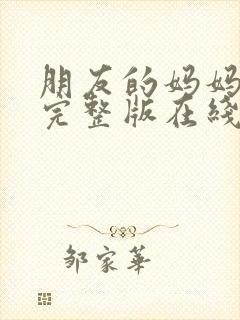 朋友的妈妈
完整版在线
邹家华